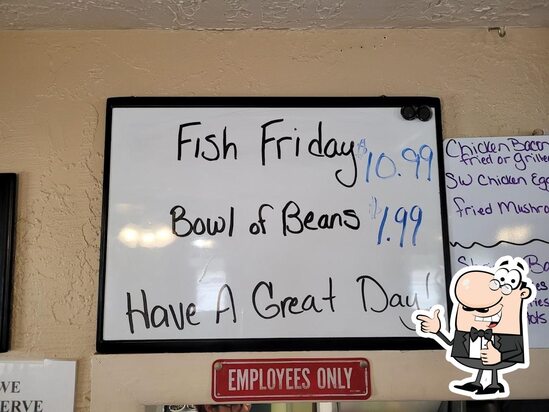 Fish Friday $10.99
Bowl of Beans $1.99
Have A Great Day!
EMPLOYEES ONLY
Chicken Bacon
fried or grilled
SW Chicken Egg
fried Mushro
WE
ERVE